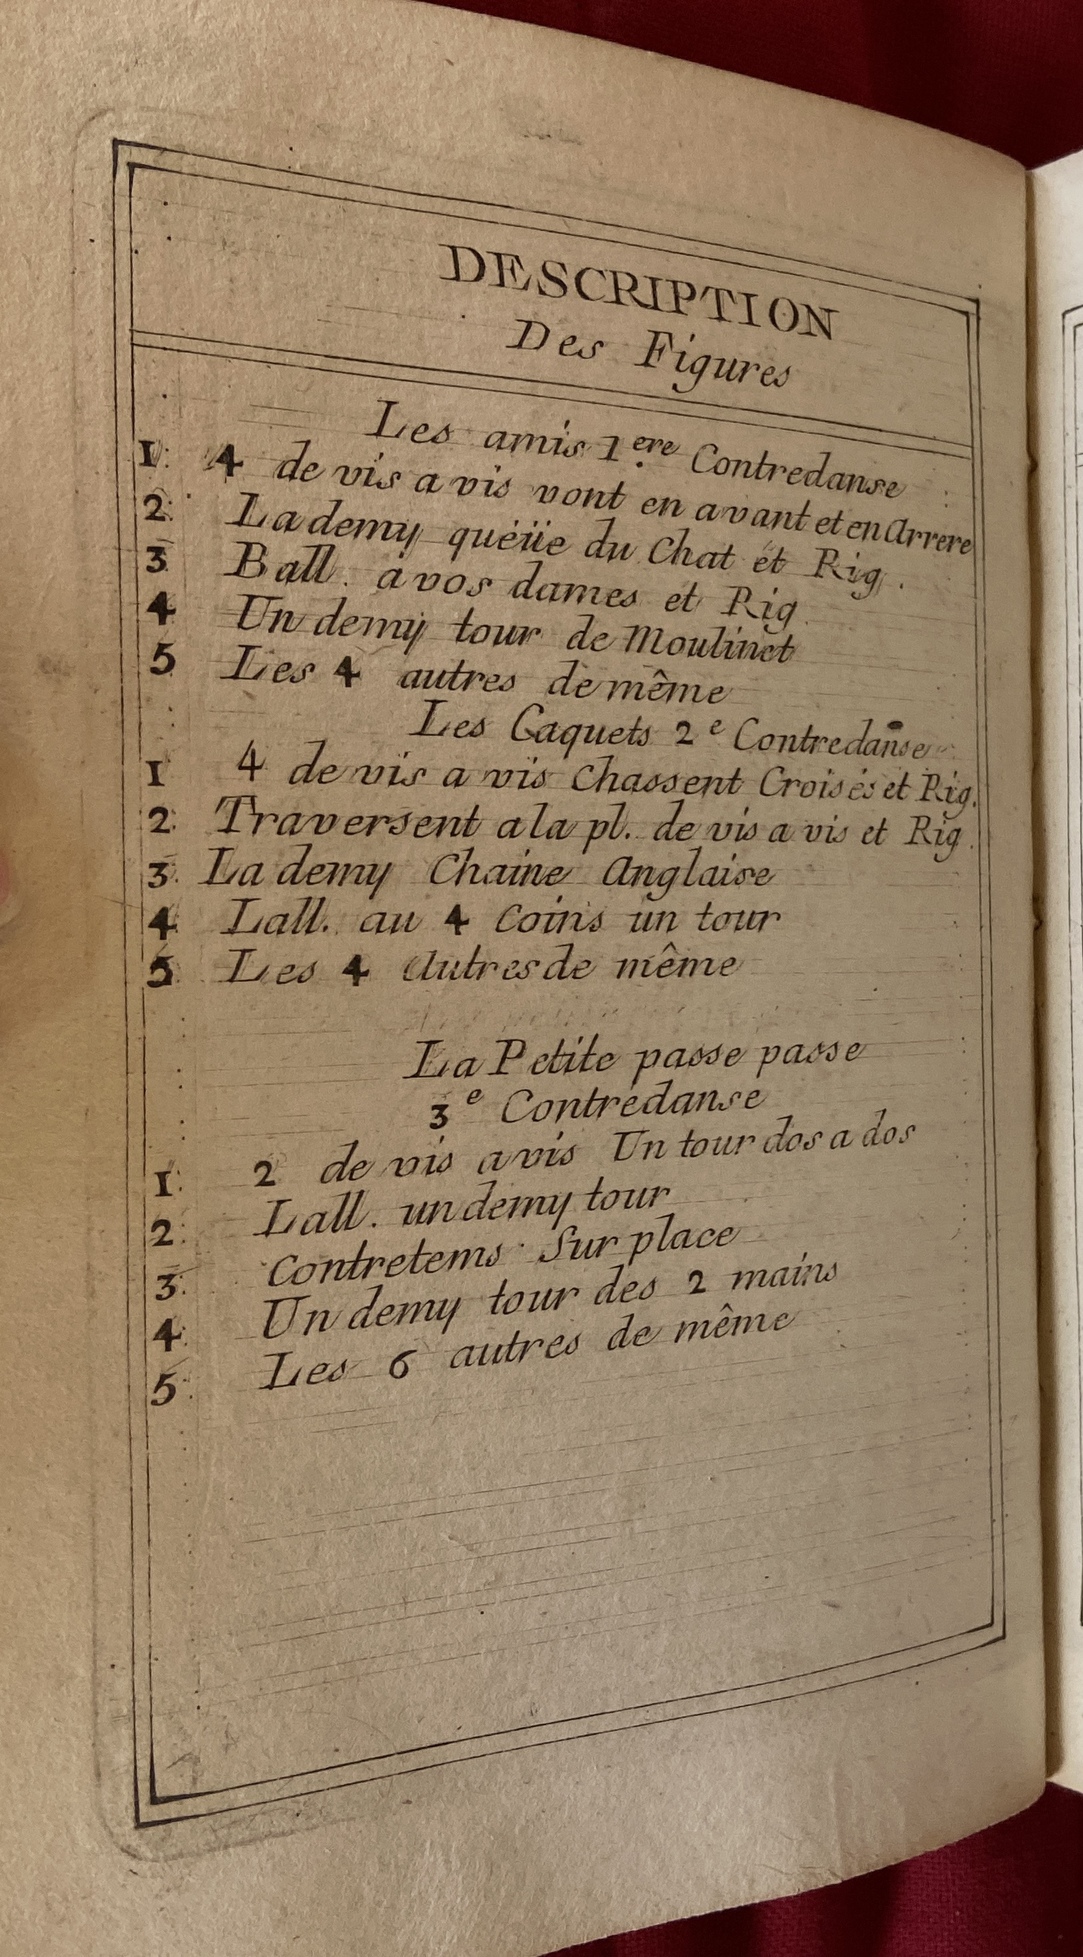 DESCRIPTION
Des Figures
Les amis 1ere Contredanse
1. 4 de vis a vis vont en avant et en Arrere
2. La demy quéüe du Chat et Rig.
3 Ball. a vos dames et Rig.
4 Un demy tour de Moulinet
5 Les 4 autres de même
Les Caquets 2e Contredanse
1 4 de vis a vis Chassent Croisés et Rig.
2. Traversent a la pl. de vis a vis et Rig.
3. La demy Chaine Anglaise
4. Lall. au 4 Coins un tour
5. Les 4 Autres de même
La Petite passe passe
3e Contredanse
1. 2 de vis a vis Un tour dos a dos
2. Lall. un demy tour
3. Contretems Sur place
4. Un demy tour des 2 mains
5. Les 6 autres de même